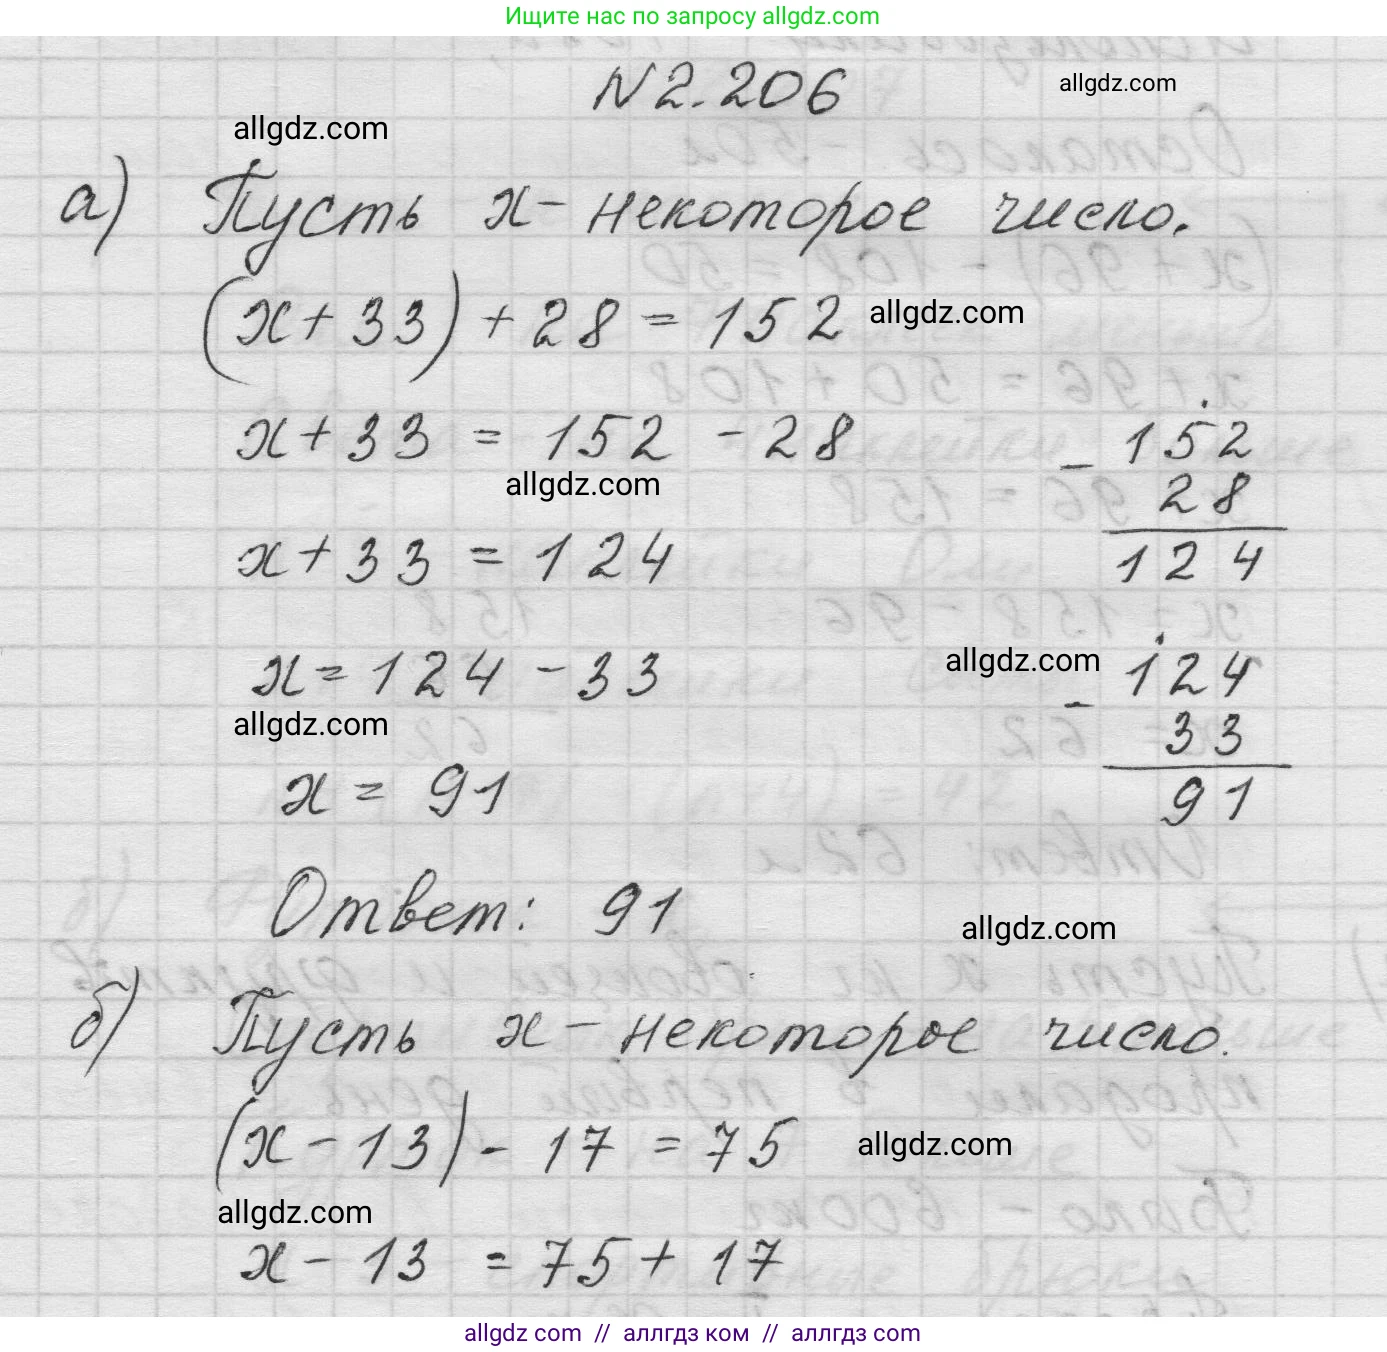 Ищите нас по запросу allgdz.com
N 2.206
allgdz.com
allgdz.com
а) Пусть x - некоторое число.
(x + 33) + 28 = 152
allgdz.com
x + 33 = 152 - 28
allgdz.com
- 152
28
124
x + 33 = 124
x = 124 - 33
allgdz.com
allgdz.com
- 124
33
91
x = 91
Ответ: 91
allgdz.com
б) Пусть x - некоторое число.
(x - 13) - 17 = 75
allgdz.com
allgdz.com
x - 13 = 75 + 17
allgdz com // аллгдз ком // аллгдз com